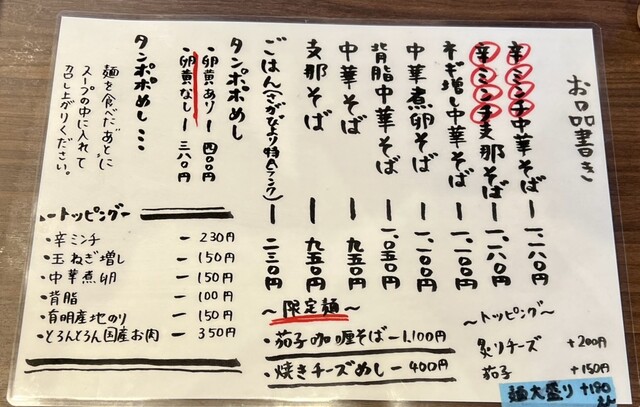 お品書き
辛ミンチ中華そば ー 一、一八〇円
辛ミンチ支那そば ー 一、一八〇円
ネギ増し中華そば ー 一、一〇〇円
中華煮卵そば ー 一、一〇〇円
背脂中華そば ー 一、〇五〇円
中華そば ー 九五〇円
支那そば ー 九五〇円
ごはん(さがびより特Aランク) ー 二三〇円
タンポポめし
・卵黄あり ー 四〇〇円
・卵黄なし ー 三八〇円
タンポポめし…
麺を食べたあとに
スープの中に入れて
召し上がりください。
ートッピングー
・辛ミンチ ー 230円
・玉ねぎ増し ー 150円
・中華煮卵 ー 150円
・背脂 ー 100円
・有明産地のり ー 150円
・とろんとろん国産お肉 ー 350円
〜限定麺〜
・茄子咖喱そば ー 1,100円
・焼きチーズめし ー 400円
〜トッピング〜
炙りチーズ +200円
茄子 +150円
麺大盛り +180えん